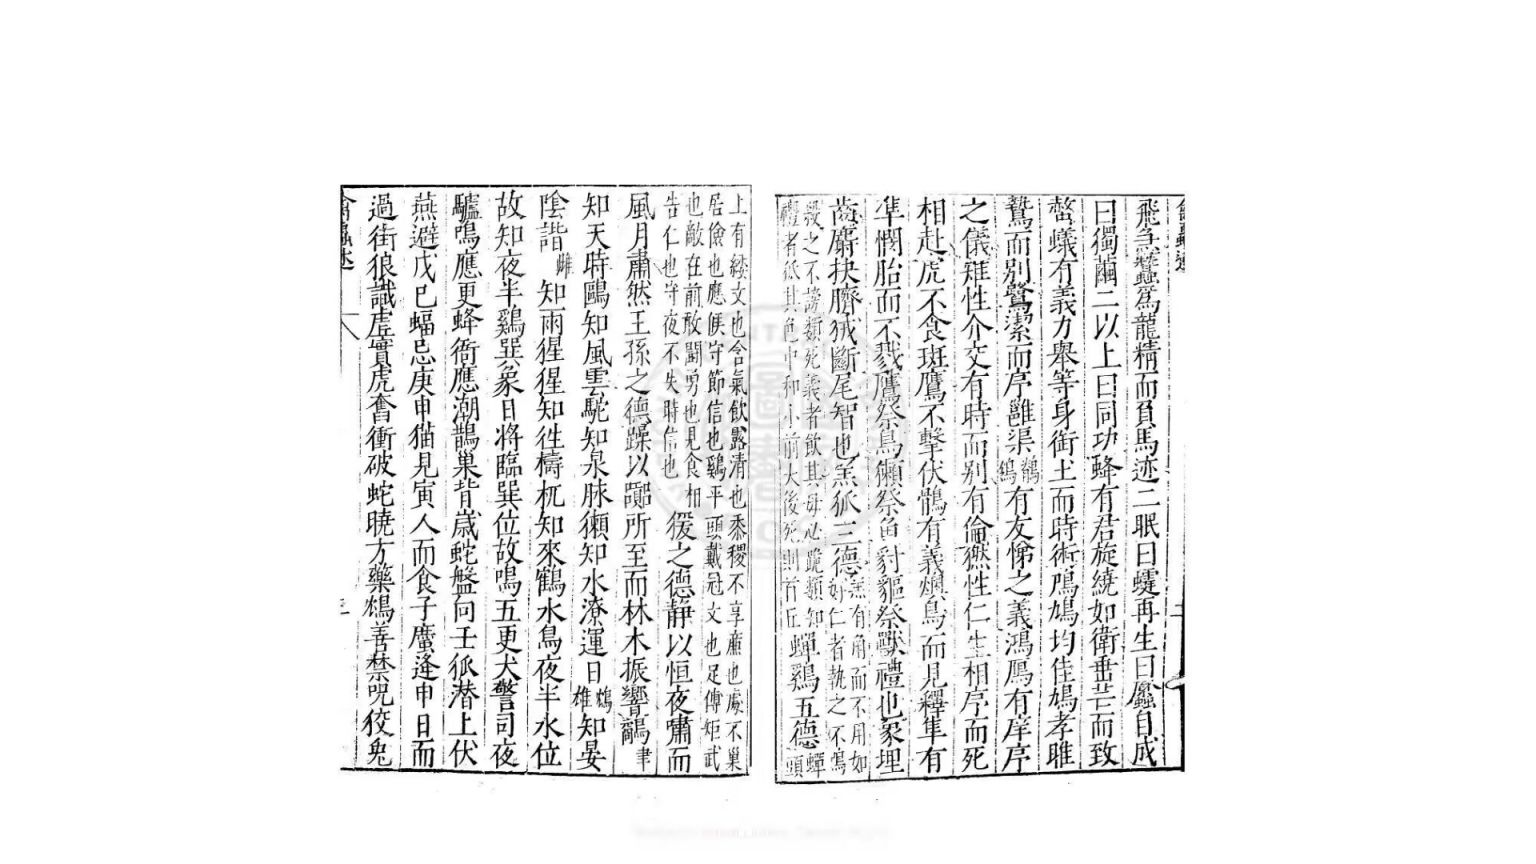 飛急蠶為龍精而負馬迹二眠曰𧐖再生曰䘉自成
曰獨繭二以上曰同功蜂有君旋繞如衛垂芒而致
螫蟻有義力舉等身銜土而時術鳲鳩均佳鳩孝雎
鷙而别鷺潔而序雝渠鶺鴒有友悌之義鴻鴈有庠序
之儀雉性介交有時而别有倫㺐性仁生相序而死
相赴虎不食斑鷹不擊伏鶻有義燠鳥而見釋隼有
準憫胎而不戮鷹祭鳥獺祭魚豺貙祭獸禮也象埋
齒麝抉臍狨斷尾智也羔狐三德羔有角而不用如
好仁者執之不鳴
殺之不謗類死義者飲其母必跪類知
禮者狐其色中和小前大後死則首丘蟬鷄五德蟬
頭
上有緌文也含氣飲露清也黍稷不享廉也處不巢
居儉也應候守節信也鷄平頭戴冠文也足傅矩武
也敵在前敢鬭勇也見食相
告仁也守夜不失時信也猨之德靜以恒夜嘯而
風月肅然王孫之德躁以囂所至而林木振響鷸聿
知天時鷗知風雲駝知泉脉獺知水潦運日鴆雄知晏
陰諧雌知雨猩猩知徃檮杌知來鶴水鳥夜半水位
故知夜半鷄巽象日將臨巽位故鳴五更犬警司夜
驢鳴應更蜂衙應潮鵲巢背歲蛇盤向壬狐潜上伏
燕避戊己蝠忌庚申猫見寅人而食子廣逄申日而
過街狼識虛實虎奮衝破蛇曉方藥鴆善禁呪狡兎